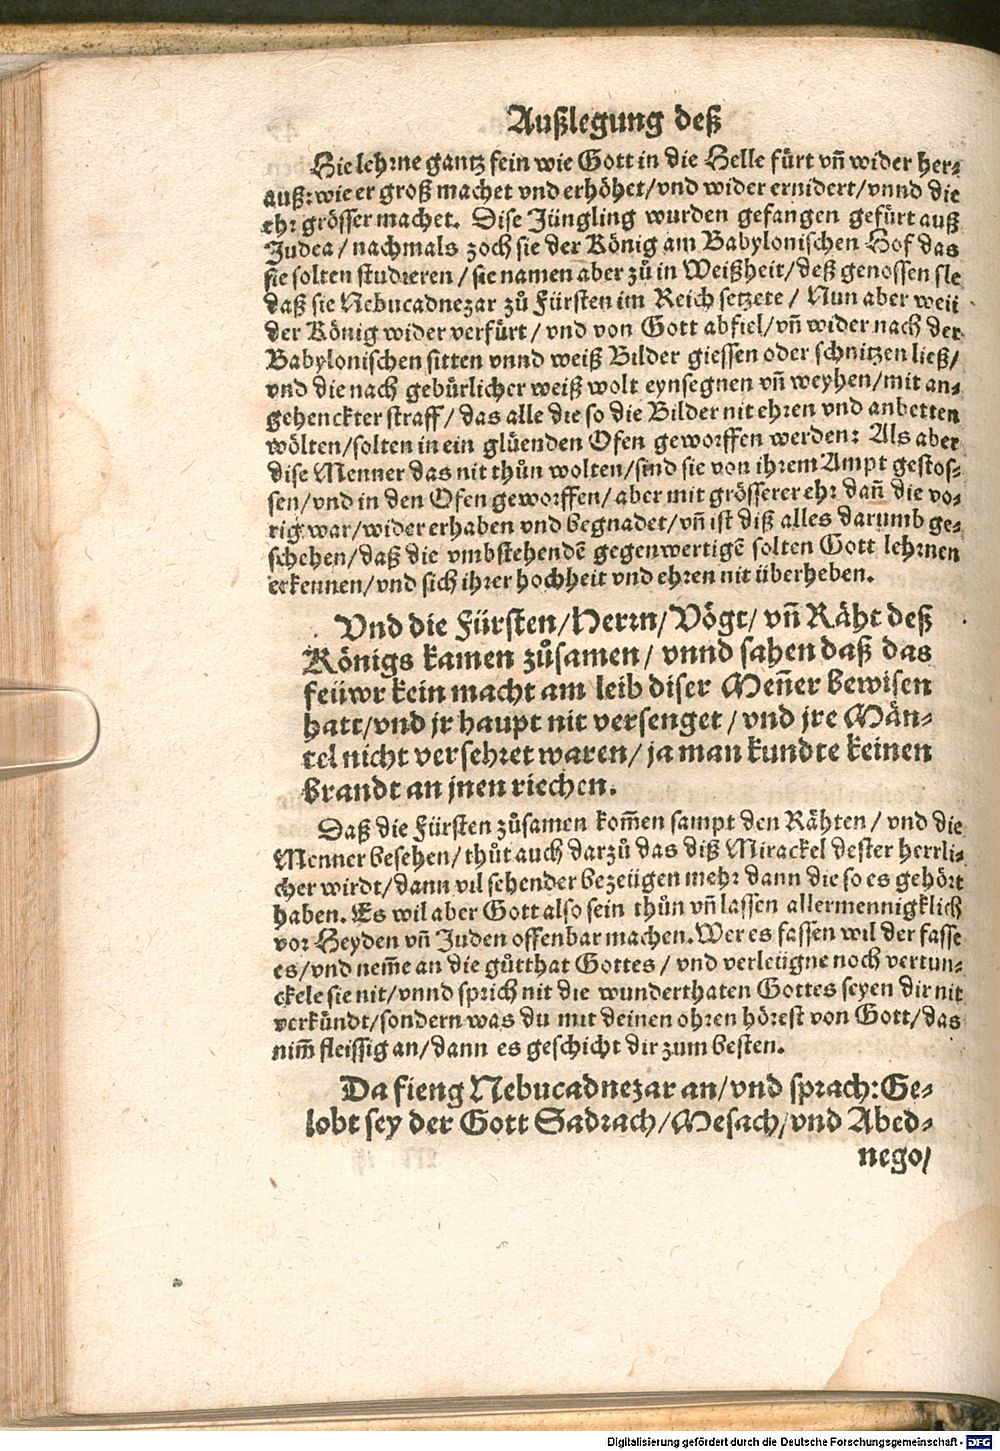 Außlegung deß
Hie lehrne gantz fein wie Gott in die Helle fürt vñ wider her-
auß: wie er groß machet vnd erhöhet/vnd wider ernidert/vnnd die
ehr grösser machet. Dise Jüngling wurden gefangen gefürt auß
Judea/nachmals zoch sie der König am Babylonischen Hof das
sie solten studreren/sie namen aber zů in Weißheit/deß genossen sie
daß sie Nebucadnezar zů Fürsten im Reich setzete/Nun aber weil
der König wider verfürt/vnd von Gott abfiel/vñ wider nach der
Babylonischen sitten vnnd weiß Bilder giessen oder schnitzen ließ/
vnd die nach gebürlicher weiß wolt eynsegnen vñ weyhen/mit an-
gehenckter straff/das alle die so die Bilder nit ehren vnd anbetten
wölten/solten in ein glüenden Ofen geworffen werden: Als aber
dise Menner das nit thůn wolten/sind sie von ihrem Ampt gestos-
sen/vnd in den Ofen geworffen/aber mit grösserer ehr dañ die vo-
rig war/wider erhaben vnd begnadet/vñ ist diß alles darumb ge-
schehen/daß die vmbstehendẽ gegenwertigẽ solten Gott lehrnen
erkennen/vnd sich ihrer hochheit vnd ehren nit überheben.
Vnd die Fürsten/Herrn/Vögt/vñ Räht deß
Königs kamen zůsamen/vnnd sahen daß das
feüwr kein macht am leib diser Meñer bewisen
hatt/vnd jr haupt nit versenget/vnd jre Män-
tel nicht versehret waren/ja man kundte keinen
brandt an jnen riechen.
Daß die Fürsten zůsamen kom̃en sampt den Rähten/vnd die
Menner besehen/thůt auch darzů das diß Mirackel dester herrli-
cher wirdt/dann vil sehender bezeügen mehr dann die so es gehört
haben. Es wil aber Gott also sein thůn vñ lassen allermennigklich
vor Heyden vñ Juden offenbar machen. Wer es fassen wil der fasse
es/vnd nem̃e an die gůtthat Gottes/vnd verleügne noch vertun-
ckele sie nit/vnnd sprich nit die wunderthaten Gottes seyen dir nit
verkündt/sondern was du mit deinen ohren hörest von Gott/das
nim̃ fleissig an/dann es geschicht dir zum besten.
Da fieng Nebucadnezar an/vnd sprach: Ge-
lobt sey der Gott Sadrach/Mesach/vnd Abed-
nego/
Digitalisierung gefördert durch die Deutsche Forschungsgemeinschaft - DFG